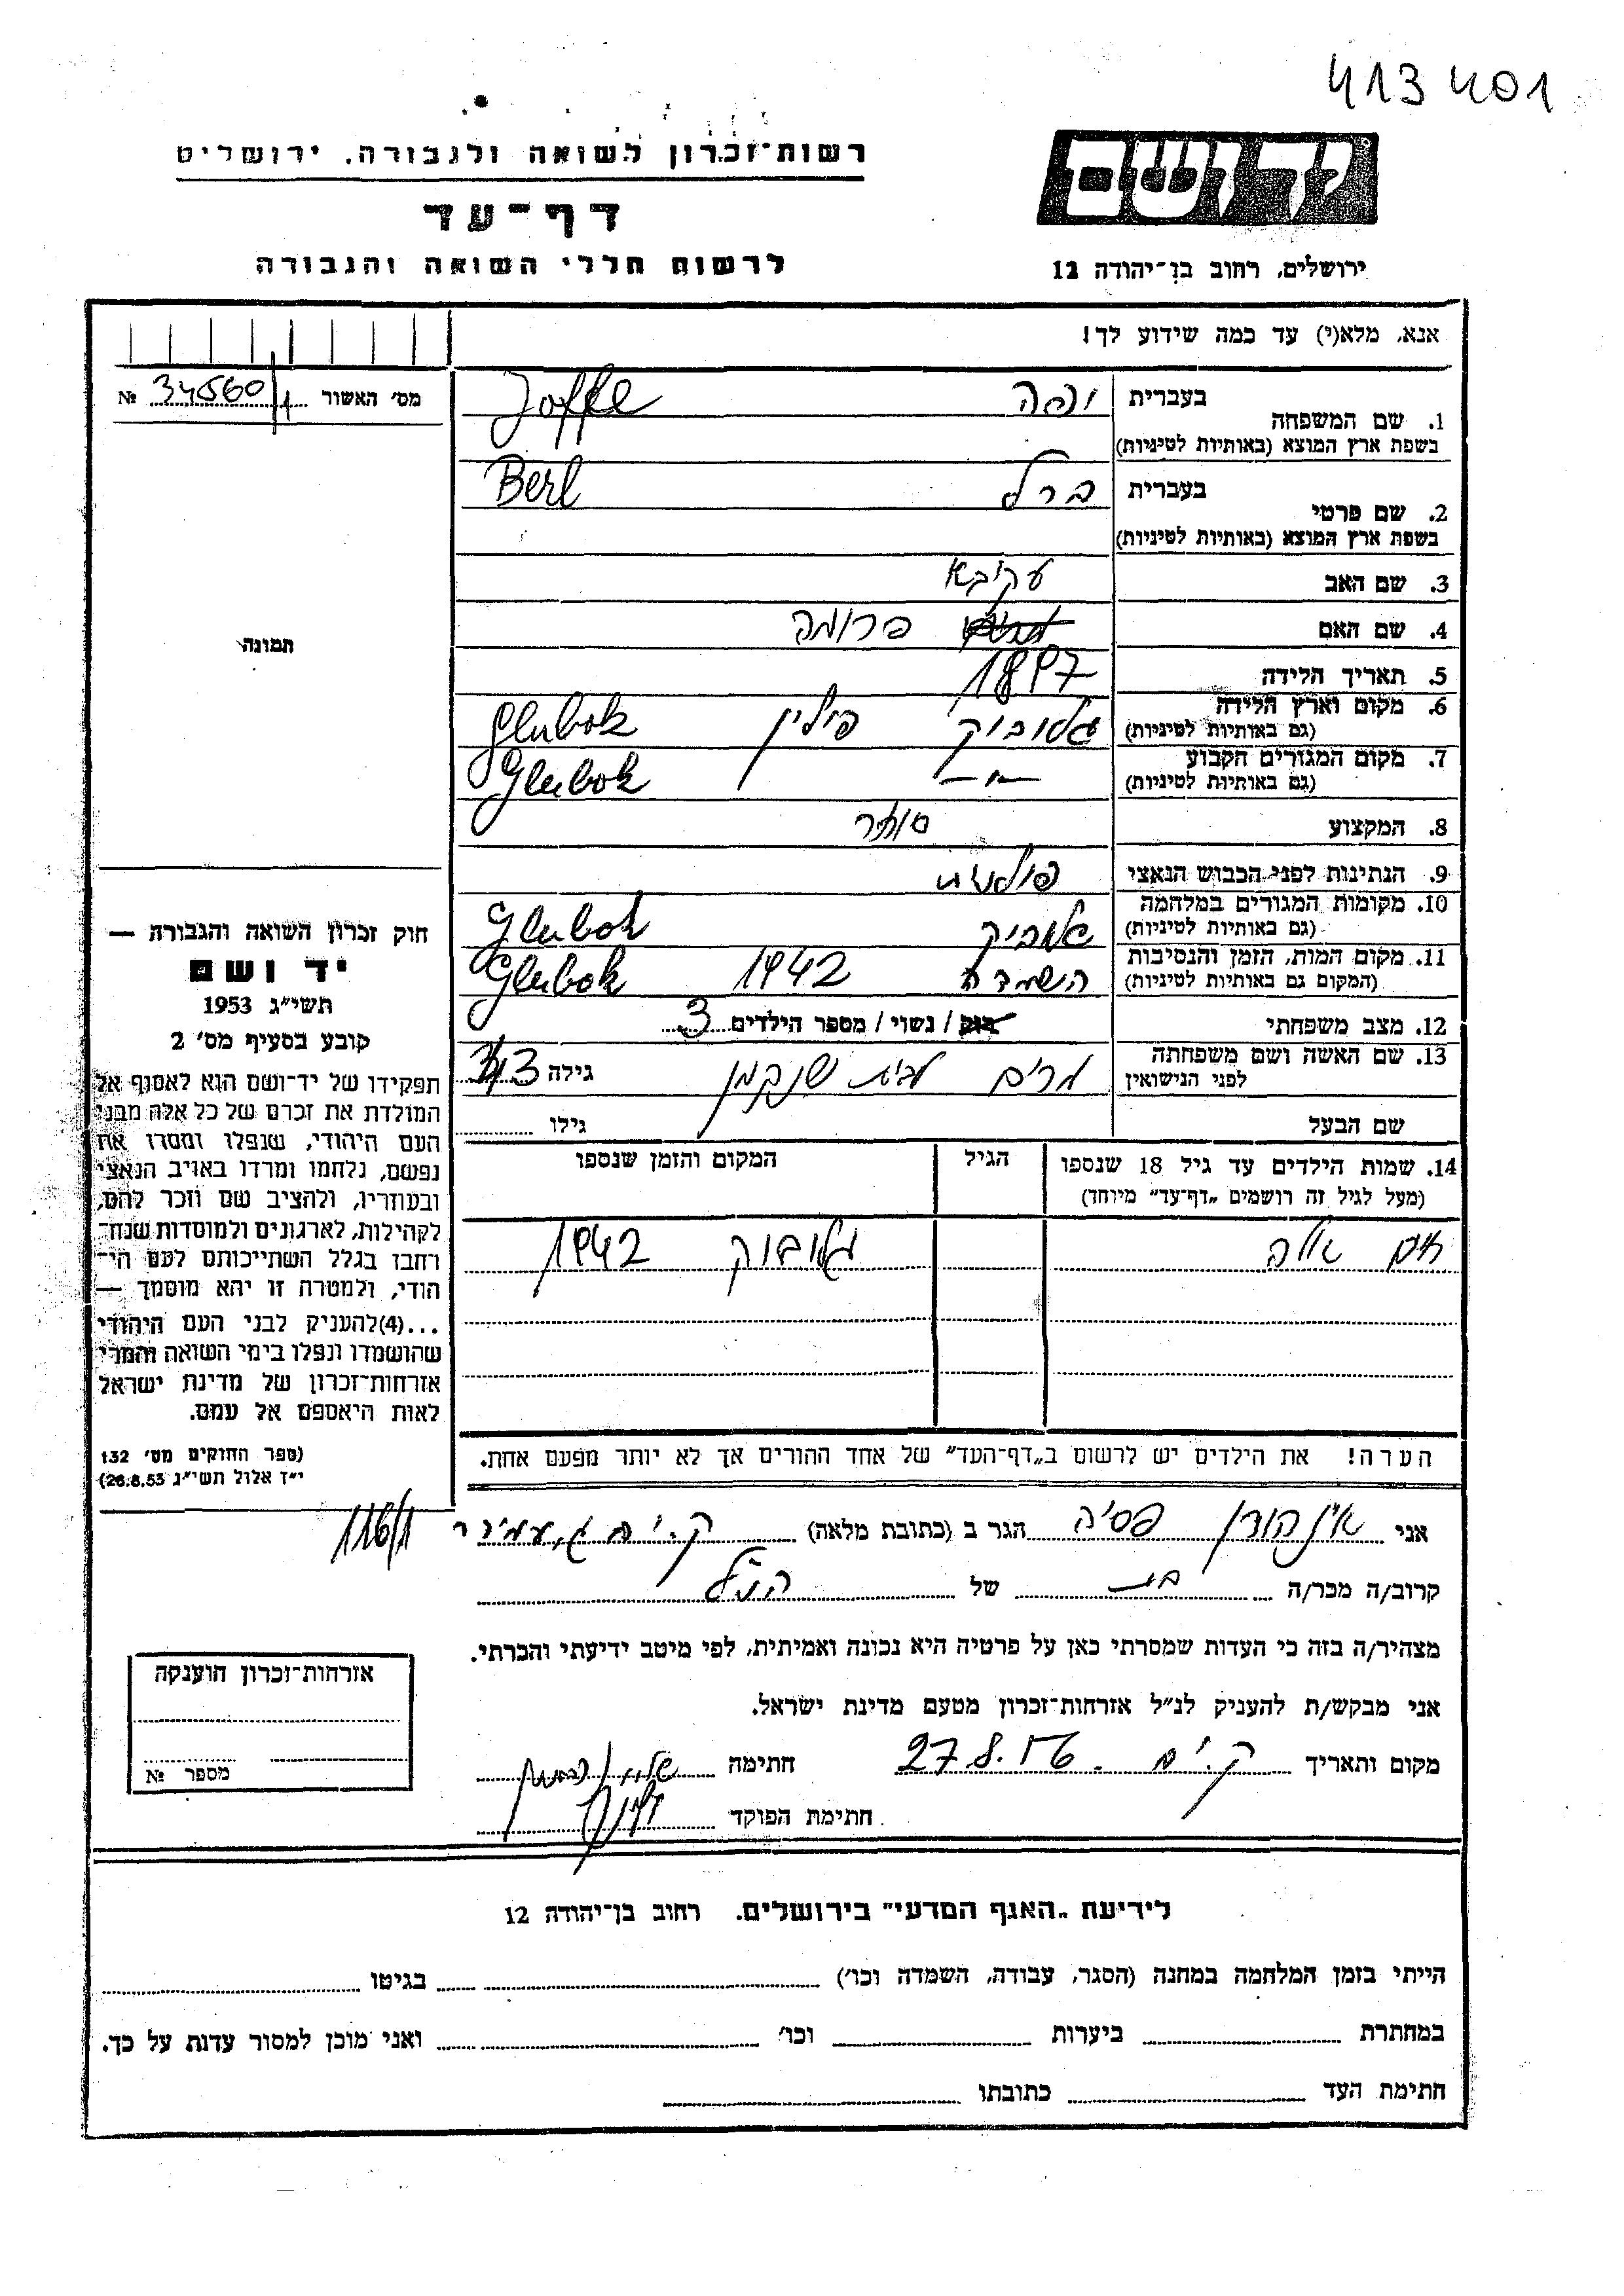 413401
רשות־זכרון לשואה ולגבורה, ירושלים
יד ושם
דף־עד
לרשום חללי השואה והגבורה
ירושלים, רחוב בן־יהודה 12
אנא, מלא(י) עד כמה שידוע לך!
מס׳ האשור № 34560/1
1. שם המשפחה בעברית יופה Joffe
בשפת ארץ המוצא (באותיות לטיניות)
2. שם פרטי בעברית ברל Berl
בשפת ארץ המוצא (באותיות לטיניות)
3. שם האב עקיבא
4. שם האם פרומה
5. תאריך הלידה 1897
6. מקום וארץ הלידה גלובוק פולין Glubok
(גם באותיות לטיניות)
7. מקום המגורים הקבוע —״— Glubok
(גם באותיות לטיניות)
8. המקצוע סוחר
9. הנתינות לפני הכבוש הנאצי פולנית
10. מקומות המגורים במלחמה Glubok
(גם באותיות לטיניות)
11. מקום המות, הזמן והנסיבות השמדה 1942 Glubok
(המקום גם באותיות לטיניות)
12. מצב משפחתי רווק / נשוי / מספר הילדים 3
13. שם האשה ושם משפחתה מרים לבית שנקמן גילה 43
לפני הנישואין
שם הבעל גילו
14. שמות הילדים עד גיל 18 שנספו הגיל המקום והזמן שנספו
(מעל לגיל זה רושמים „דף־עד״ מיוחד)
חיים גלובוק 1942
הערה! את הילדים יש לרשום ב„דף־העד״ של אחד ההורים אך לא יותר מפעם אחת.
תמונה
חוק זכרון השואה והגבורה —
יד ושם
תשי״ג 1953
קובע בסעיף מס׳ 2
תפקידו של יד־ושם הוא לאסוף אל
המולדת את זכרם של כל אלה מבני
העם היהודי, שנפלו ומסרו את
נפשם, נלחמו ומרדו באויב הנאצי
ובעוזריו, ולהציב שם וזכר להם,
לקהילות, לארגונים ולמוסדות שנח־
רחבו בגלל השתייכותם לעם הי־
הודי, ולמטרה זו יהא מוסמך —
...(4)להעניק לבני העם היהודי
שהושמדו ונפלו בימי השואה והמרי
אזרחות־זכרון של מדינת ישראל
לאות היאספם אל עמם.
(ספר החוקים מס׳ 132
י״ז אלול תשי״ג 26.8.53)
116/1
אני אינהורן פסיה הגר ב (כתובת מלאה) ק. ים
קרוב/ה מכר/ה בת של הנ״ל
מצהיר/ה בזה כי העדות שמסרתי כאן על פרטיה היא נכונה ואמיתית, לפי מיטב ידיעתי והכרתי.
אני מבקש/ת להעניק לנ״ל אזרחות־זכרון מטעם מדינת ישראל.
מקום ותאריך ק. ים 27.8.56 חתימה
חתימת הפוקד
אזרחות־זכרון הוענקה
מספר №
לידיעת „האגף המדעי״ בירושלים. רחוב בן־יהודה 12
הייתי בזמן המלחמה במחנה (הסגר, עבודה, השמדה וכו׳) בגיטו
במחתרת ביערות וכו׳ ואני מוכן למסור עדות על כך.
חתימת העד כתובתו